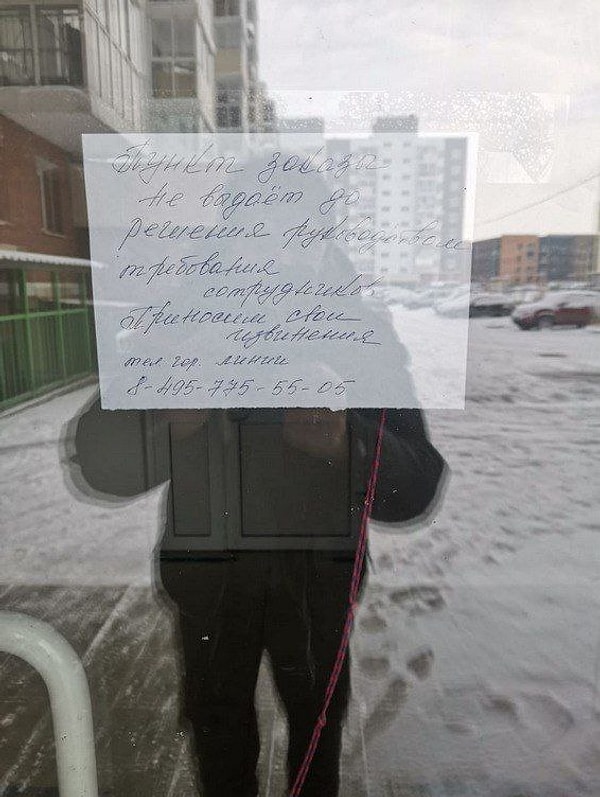 Пункт заказы
не выдаёт до
решения руководством
требования
сотрудников
Приносим свои
извинения
тел. гор. линии
8-495-775-55-05